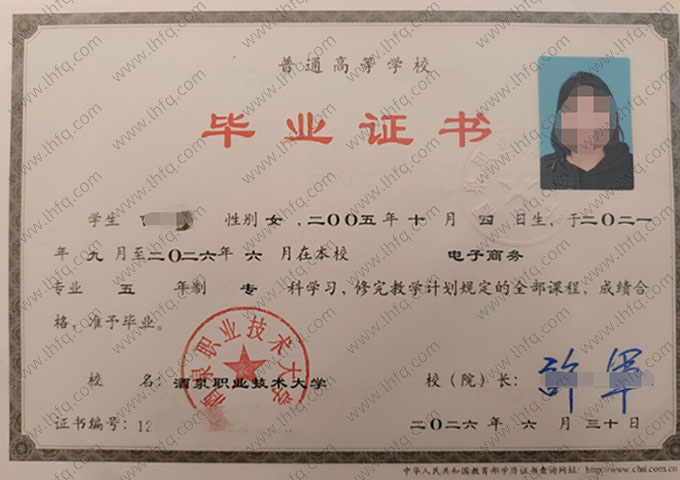 普通高等学校
毕业证书
学生 性别 女 ,二〇〇五年 十 月 四 日生,于二〇二一
年 九 月至二〇二六年 六 月在本校 电子商务
专业 五 年制 专 科学习,修完教学计划规定的全部课程,成绩合
格,准予毕业。
酒泉职业技术大学
校 名:酒泉职业技术大学 校(院)长: 许军
证书编号:12 二〇二六年 六 月 三十日
中华人民共和国教育部学历证书查询网址:http://www.chsi.com.cn
www.lhfq.com